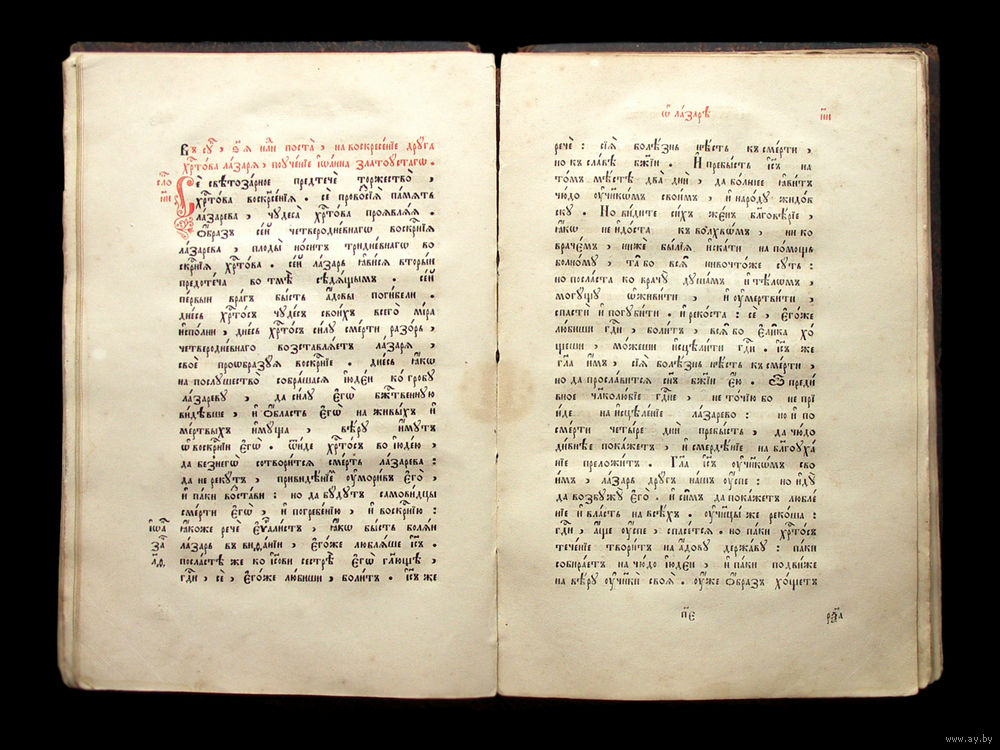 Въ сꙋ҃, ѕ҃ꙗ нлⷭ҇и поста̀, на воскресе́нїе дрꙋ́га
хрⷭ҇то́ва ла́зарѧ, поꙋче́нїе і҆ѡа́нна златоꙋ́стагѡ.
сло́
Сѐ свѣтоза́рное предтечѐ торжество̀,
и҃і
хрⷭ҇то́ва воскрⷭ҇е́нїѧ. сѐ провоꙁсїѧ̀ па́мѧть
ла́зарева, чꙋдеса̀ хрⷭ҇то́ва проѧвлѧ́ѧ.
ѻ҆́бразъ се́й четверодне́внагѡ воскрⷭ҇нїѧ
ла́зарева, плоды̀ но́ситъ тридне́внагѡ во
скрⷭ҇нїѧ хрⷭ҇то́ва. се́й ла́зарь ꙗ҆ви́сѧ вторы́й
предоте́ча во тмѣ̀ сѣдѧ́щымъ. се́й
пе́рвый вра́гъ бы́сть а҆́довы поги́бели.
дне́сь хрⷭ҇то́съ чꙋде́съ свои́хъ всего̀ мі́ра
и҆спо́лни, дне́сь хрⷭ҇то́съ си́лꙋ сме́рти разо́рь,
четверодне́внаго возставлѧ́етъ ла́зарѧ,
своѐ проѡбразꙋ́ѧ воскрⷭ҇нїе. дне́сь ꙗ҆́кѡ
на послꙋ́шество собра́шасѧ і҆ꙋде́и ко гро́бꙋ
ла́заревꙋ, да си́лꙋ є҆гѡ̀ бж҃твеннꙋю
ви́дѣвше, и҆ ѻ҆́бласть є҆гѡ̀ на живы́хъ и҆
ме́ртвыхъ и҆мꙋ́ща, вѣ́рꙋ и҆́мꙋтъ
ѡ҆ воскрⷭ҇нїи є҆гѡ̀. ѿи́де хрⷭ҇то́съ во і҆ꙋде́ю,
да без̾негѡ̀ сотвори́тсѧ сме́рть ла́зарева:
да не рекꙋ́тъ, привидѣ́нїе ᲂу҆мори́въ є҆го̀,
и҆ па́ки воста́ви: но да бꙋ́дꙋтъ самови́дцы
сме́рти є҆гѡ̀, и҆ погребе́нїю, и҆ воскрⷭ҇нїю:
і҆ѡа́
ꙗ҆́коже речѐ є҆ѵⷢ҇алистъ, ꙗ҆́кѡ бы́сть болѧ́й
за҃
ла́зарь въ виѳ́анїи, є҆го́же люблѧ́ше і҆и҃съ.
м҃ѳ.
посла́стѣ же ко і҆и҃сови сестрѣ̀ є҆гѡ̀ гл҃ющѣ,
гдⷭ҇и, сѐ, є҆го́же лю́биши, боли́тъ. і҆и҃съ же
ѡ҆ ла́зарѣ
н҃и
речѐ: сїѧ̀ болѣ́знь нѣ́сть къ сме́рти,
но къ сла́вѣ бж҃їи. И҆ пребы́сть і҆и҃съ на
то́мъ мѣ́стѣ два̀ днѝ, да бо́лшее ꙗ҆ви́тъ
чю́до ᲂу҆чн҃кѡ́мъ свои́мъ, и҆ наро́дꙋ жидо́в
скꙋ. Но ви́дите си́хъ же́нъ бл҃гове́рїе,
ꙗ҆́кѡ не и҆до́ста къ волхвѡ́мъ, ни ко
враче́мъ, ни́же бы́лїѧ и҆ска́ти на по́мощь
болно́мꙋ, та́ бо всѧ̀ ничто́же сꙋ́ть:
но посла́ста ко врачꙋ̀ дꙋша́мъ и҆ тѣлѡ́мъ,
могꙋ́щꙋ ѡ҆живи́ти, и҆ ᲂу҆мертви́ти,
спастѝ и҆ погꙋби́ти. и҆ реко́ста: сѐ, є҆го́же
лю́биши гдⷭ҇и, боли́тъ, всѧ̑ бо є҆ли́ка хо́
щеши, мо́жеши и҆сцели́ти гдⷭ҇и. і҆и҃съ же
гл҃а и҆́мъ, сїѧ̀ болѣ́знь нѣ́сть къ сме́рти,
но да просла́витсѧ сн҃ъ бж҃їи є҆́ю. Ѽ преди́
вное чл҃колю́бїе гдⷭ҇не, не то́чїю бо не прі
и́де на и҆сцеле́нїе ла́зарево: но и҆ по
сме́рти четы́ре днѝ пребы́сть, да чю́до
ди́внѣе пока́жетъ, и҆ смердѣ́нїе на бл҃гоꙋха́
нїе преложи́тъ. Гл҃а і҆и҃съ ᲂу҆чн҃кѡ́мъ сво
и́мъ, ла́зарь дрꙋ́гъ на́шъ ᲂу҆́спе: но и҆дꙋ̀
да возбꙋжꙋ̀ є҆го̀. и҆ си́мъ да пока́жетъ любле́
нїе и҆ вла́сть на всѣ́хъ. ᲂу҆чн҃цы́ же реко́ша:
гдⷭ҇и, а҆́ще ᲂу҆́спе, спасе́тсѧ. но па́ки хрⷭ҇то́съ
тече́нїе твори́тъ на а҆́довꙋ держа́вꙋ: па́ки
собира́етъ на чю́до і҆ꙋде́и, и҆ па́ки подви́же
на вѣ́рꙋ ᲂу҆чн҃кѝ своѧ̀. ᲂу҆же ѻ҆́бразъ хо́щетъ
п҃є
www.ay.by